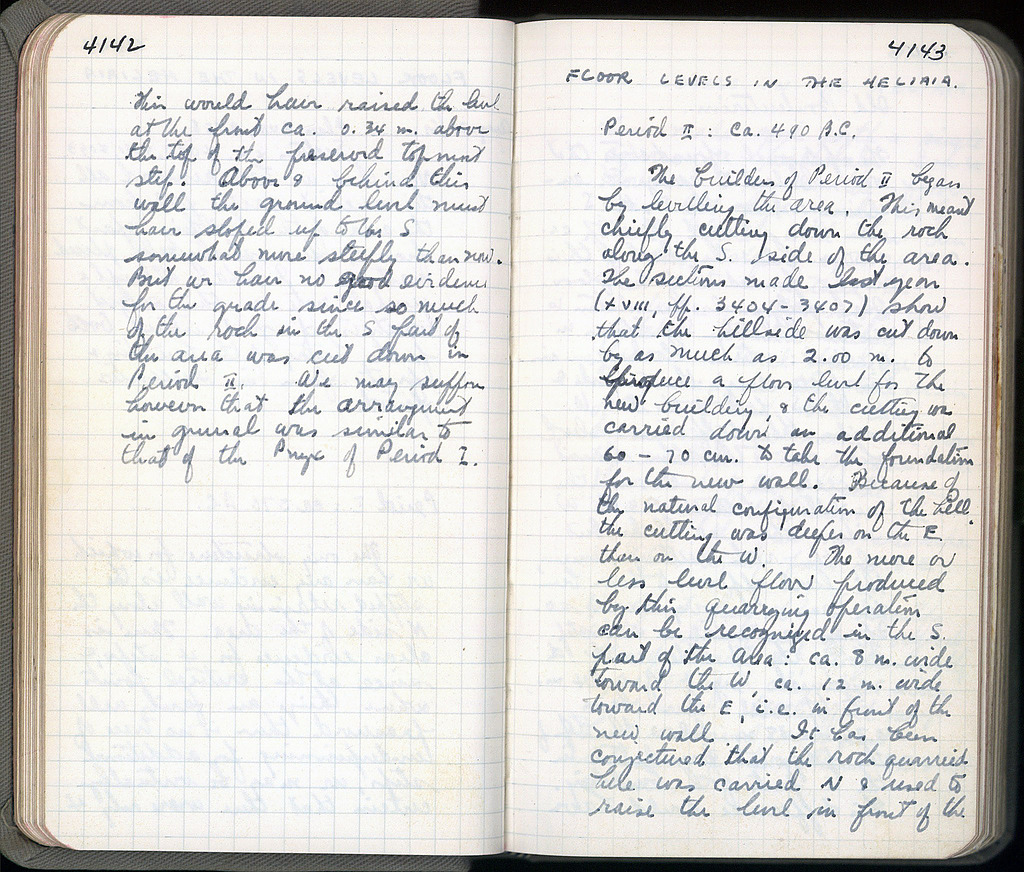 4142
This would have raised the level
at the front ca. 0.34 m. above
the top of the preserved topmost
step. Above & behind this
wall the ground level must
have sloped up to the S
somewhat more steeply than now.
But we have no good evidence
for the grade since so much
of the rock in the S part of
the area was cut down in
Period II. We may suppose
however that the arrangement
in general was similar to
that of the Pnyx of Period I.
4143
FLOOR LEVELS IN THE HELIAIA.
Period II : ca. 490 B.C.
The builders of Period II began
by levelling the area. This meant
chiefly cutting down the rock
along the S. side of the area.
The sections made last year
(XVIII, pp. 3404-3407) show
that the hillside was cut down
by as much as 2.00 m. to
produce a floor level for the
new building, & the cutting was
carried down an additional
60 - 70 cm. to take the foundation
for the new wall. Because of
the natural configuration of the hill
the cutting was deeper on the E.
than on the W. The more or
less level floor produced
by this quarrying operation
can be recognized in the S.
part of the area: ca. 8 m. wide
toward the W, ca. 12 m. wide
toward the E, i.e. in front of the
new wall. It has been
conjectured that the rock quarried
here was carried N & used to
raise the level in front of the